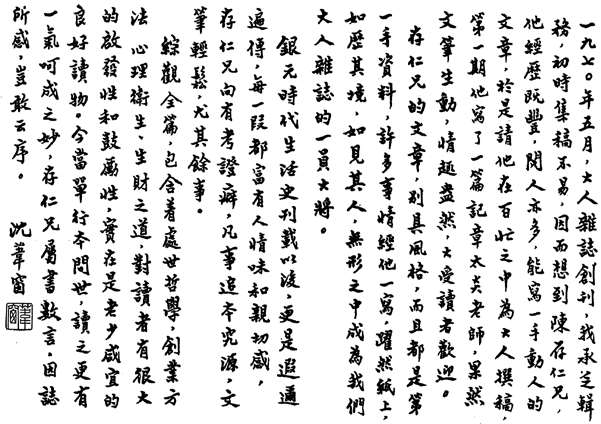 一九七〇年五月，大人雜誌創刊，我承乏輯
務，初時集稿不易，因而想到陳存仁兄，
他經歷既豐，閱人亦多，能寫一手動人的
文章，於是請他在百忙之中為大人撰稿，
第一期他寫了一篇記章太炎老師，果然
文筆生動，情趣盎然，大受讀者歡迎。
存仁兄的文章，別具風格，而且都是第
一手資料，許多事情經他一寫，躍然紙上，
如歷其境，如見其人，無形之中成為我們
大人雜誌的一員大將。
銀元時代生活史刊載以後，更是遐邇
遍傳，每一段都富有人情味和親切感，
存仁兄向有考證癖，凡事追本究源，文
筆輕鬆，尤其餘事。
綜觀全篇，包含着處世哲學，創業方
法，心理衛生，生財之道，對讀者有很大
的啟發性和鼓勵性，實在是老少咸宜的
良好讀物。今當單行本問世，讀之更有
一氣呵成之妙，存仁兄屬書數言，因誌
所感，豈敢云序。
沈葦窗
葦窗